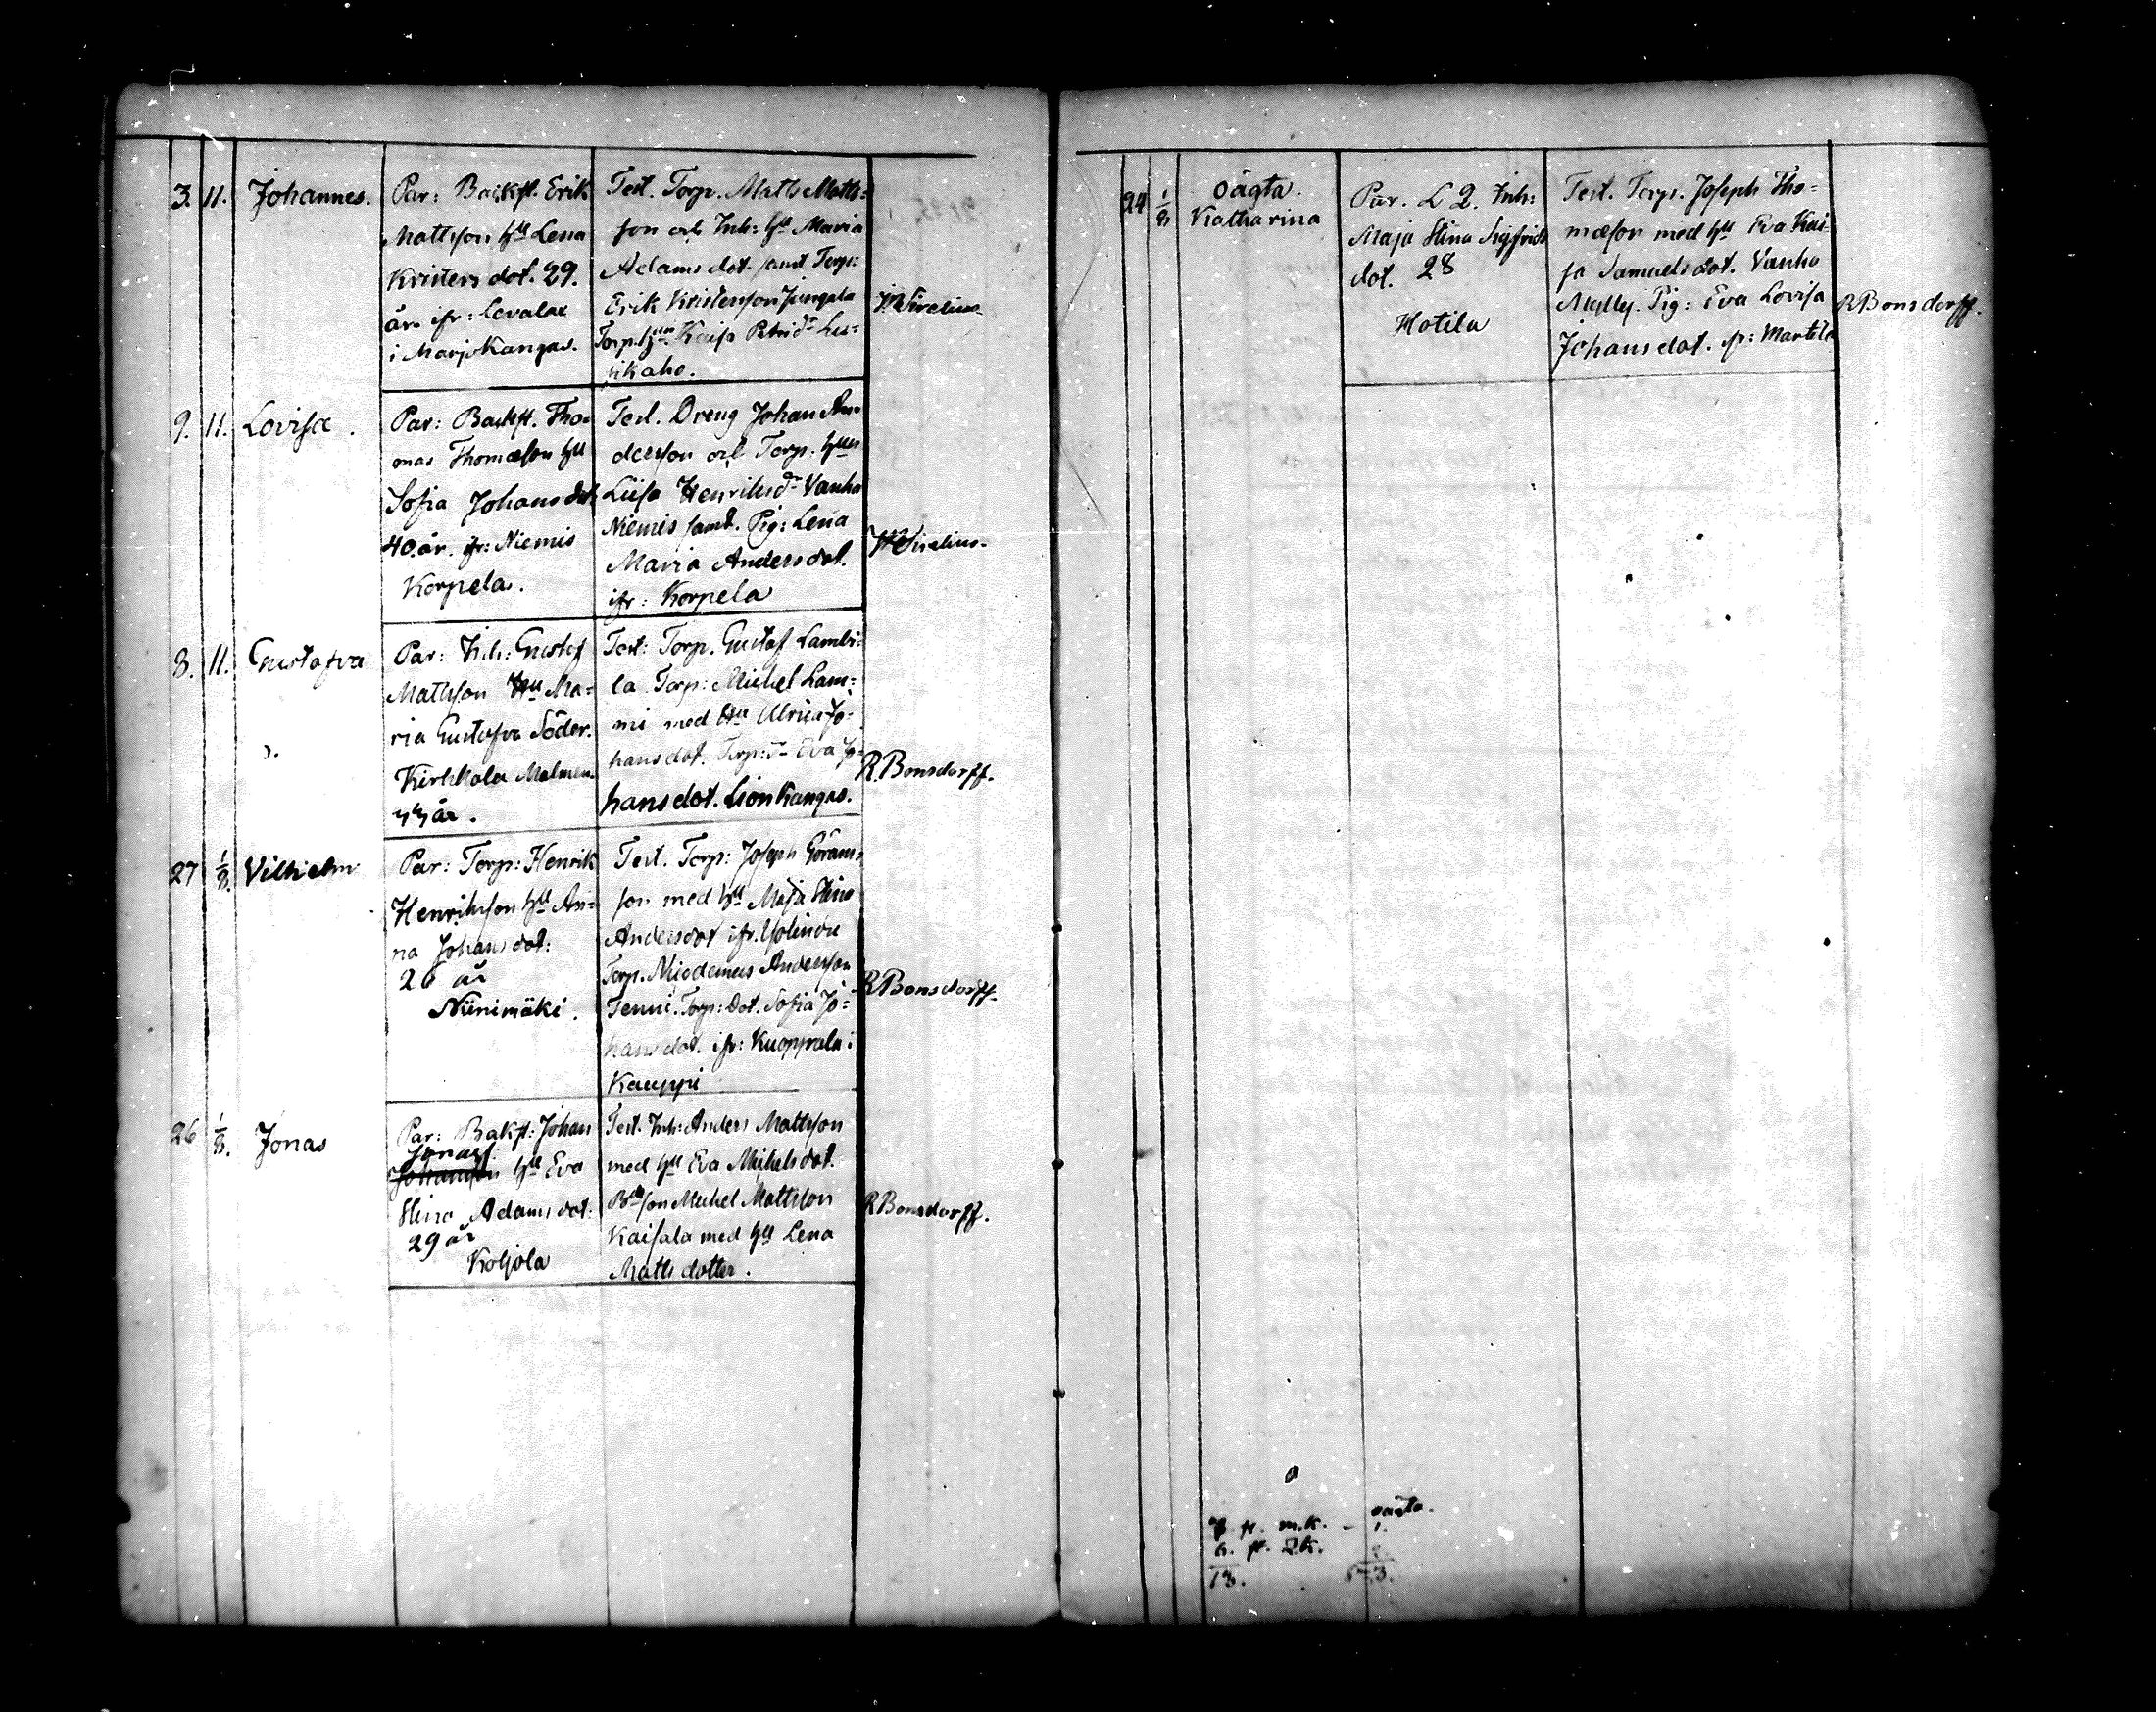 3. 11. Johannes.
Par: Backst. Erik
Mattsson hu Lena
Kristersdot. 29.
år. ifr: Lovalax
i Marjokangas.
Test. Torp. Matts Matts=
son och Inh: hu Maria
Adamsdot. samt Torp:
Erik Kristersson Jungala
Torp. hun Kaisa
sikaho.
9. 11. Lovisa.
Par: Backst. Tho=
mas Thomasson hu
Sofia Johansdot.
40. år. ifr: Niemis
Korpela.
Test. Dreng Johan An=
dersson och Torp. hun
Liisa Henriksdr Vanha
Niemis samt. Pig: Lena
Maria Andersdot.
ifr: Korpela
8. 11. Gustafva
Par: Inh: Gustaf
Mattsson Hu Ma=
ria Gustafva Söder.
Kirkkola Malmen.
44 år.
Test: Torp. Gustaf Lambi=
la Torp: Michel Lam=
mi med Hu Ulrica Jo=
hansdot. Torp: Eva Jo=
hansdot. Lionkangas.
R Bonsdorff.
27 1/8. Vilhelm
Par: Torp: Henrik
Henriksson hu An=
na Johansdot:
26 år
Niinimäki.
Test. Torp: Joseph Görans=
son med hu Maja Stina
Andersdot ifr.
Torp. Nicodemus Andersson
Tenni. Torp: Dot. Sofia Jo=
hansdot. ifr: Kuoppala i
Kauppi
R Bonsdorff.
26 1/8. Jonas
Par: Bakst: Johan
Jonass.
Johansson hu Eva
Stina Adamsdot:
29 år
Koljola
Test. Inh: Anders Mattsson
med hu Eva Michelsdot.
Bdeson Michel Mattsson
Kaisala med hu Lena
Matts dotter.
R Bonsdorff.
24 1/8 oägta.
Katharina
Par. L 2. Inh:
Maja Stina Sigfrids
dot. 28
Hotila
Test. Torp. Joseph Tho=
masson med hu Eva Kai=
sa Samuelsdot. Vanha
Mylly. Pig: Eva Lovisa
Johansdot. ifr: Martila
R Bonsdorff.
oägta.
7 st. m.k. – 1.
6. st. Q.k.
13.